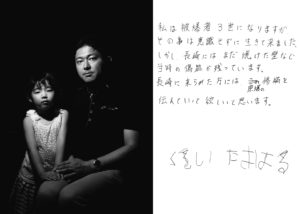 私は被爆者3世になりますが
その事は意識せずに生きて来ました。
しかし長崎にはまだ焼けた壁など
当時の傷跡が残っています。
長崎に来られた方には この傷跡を
原爆の
伝えていって欲しいと思います。